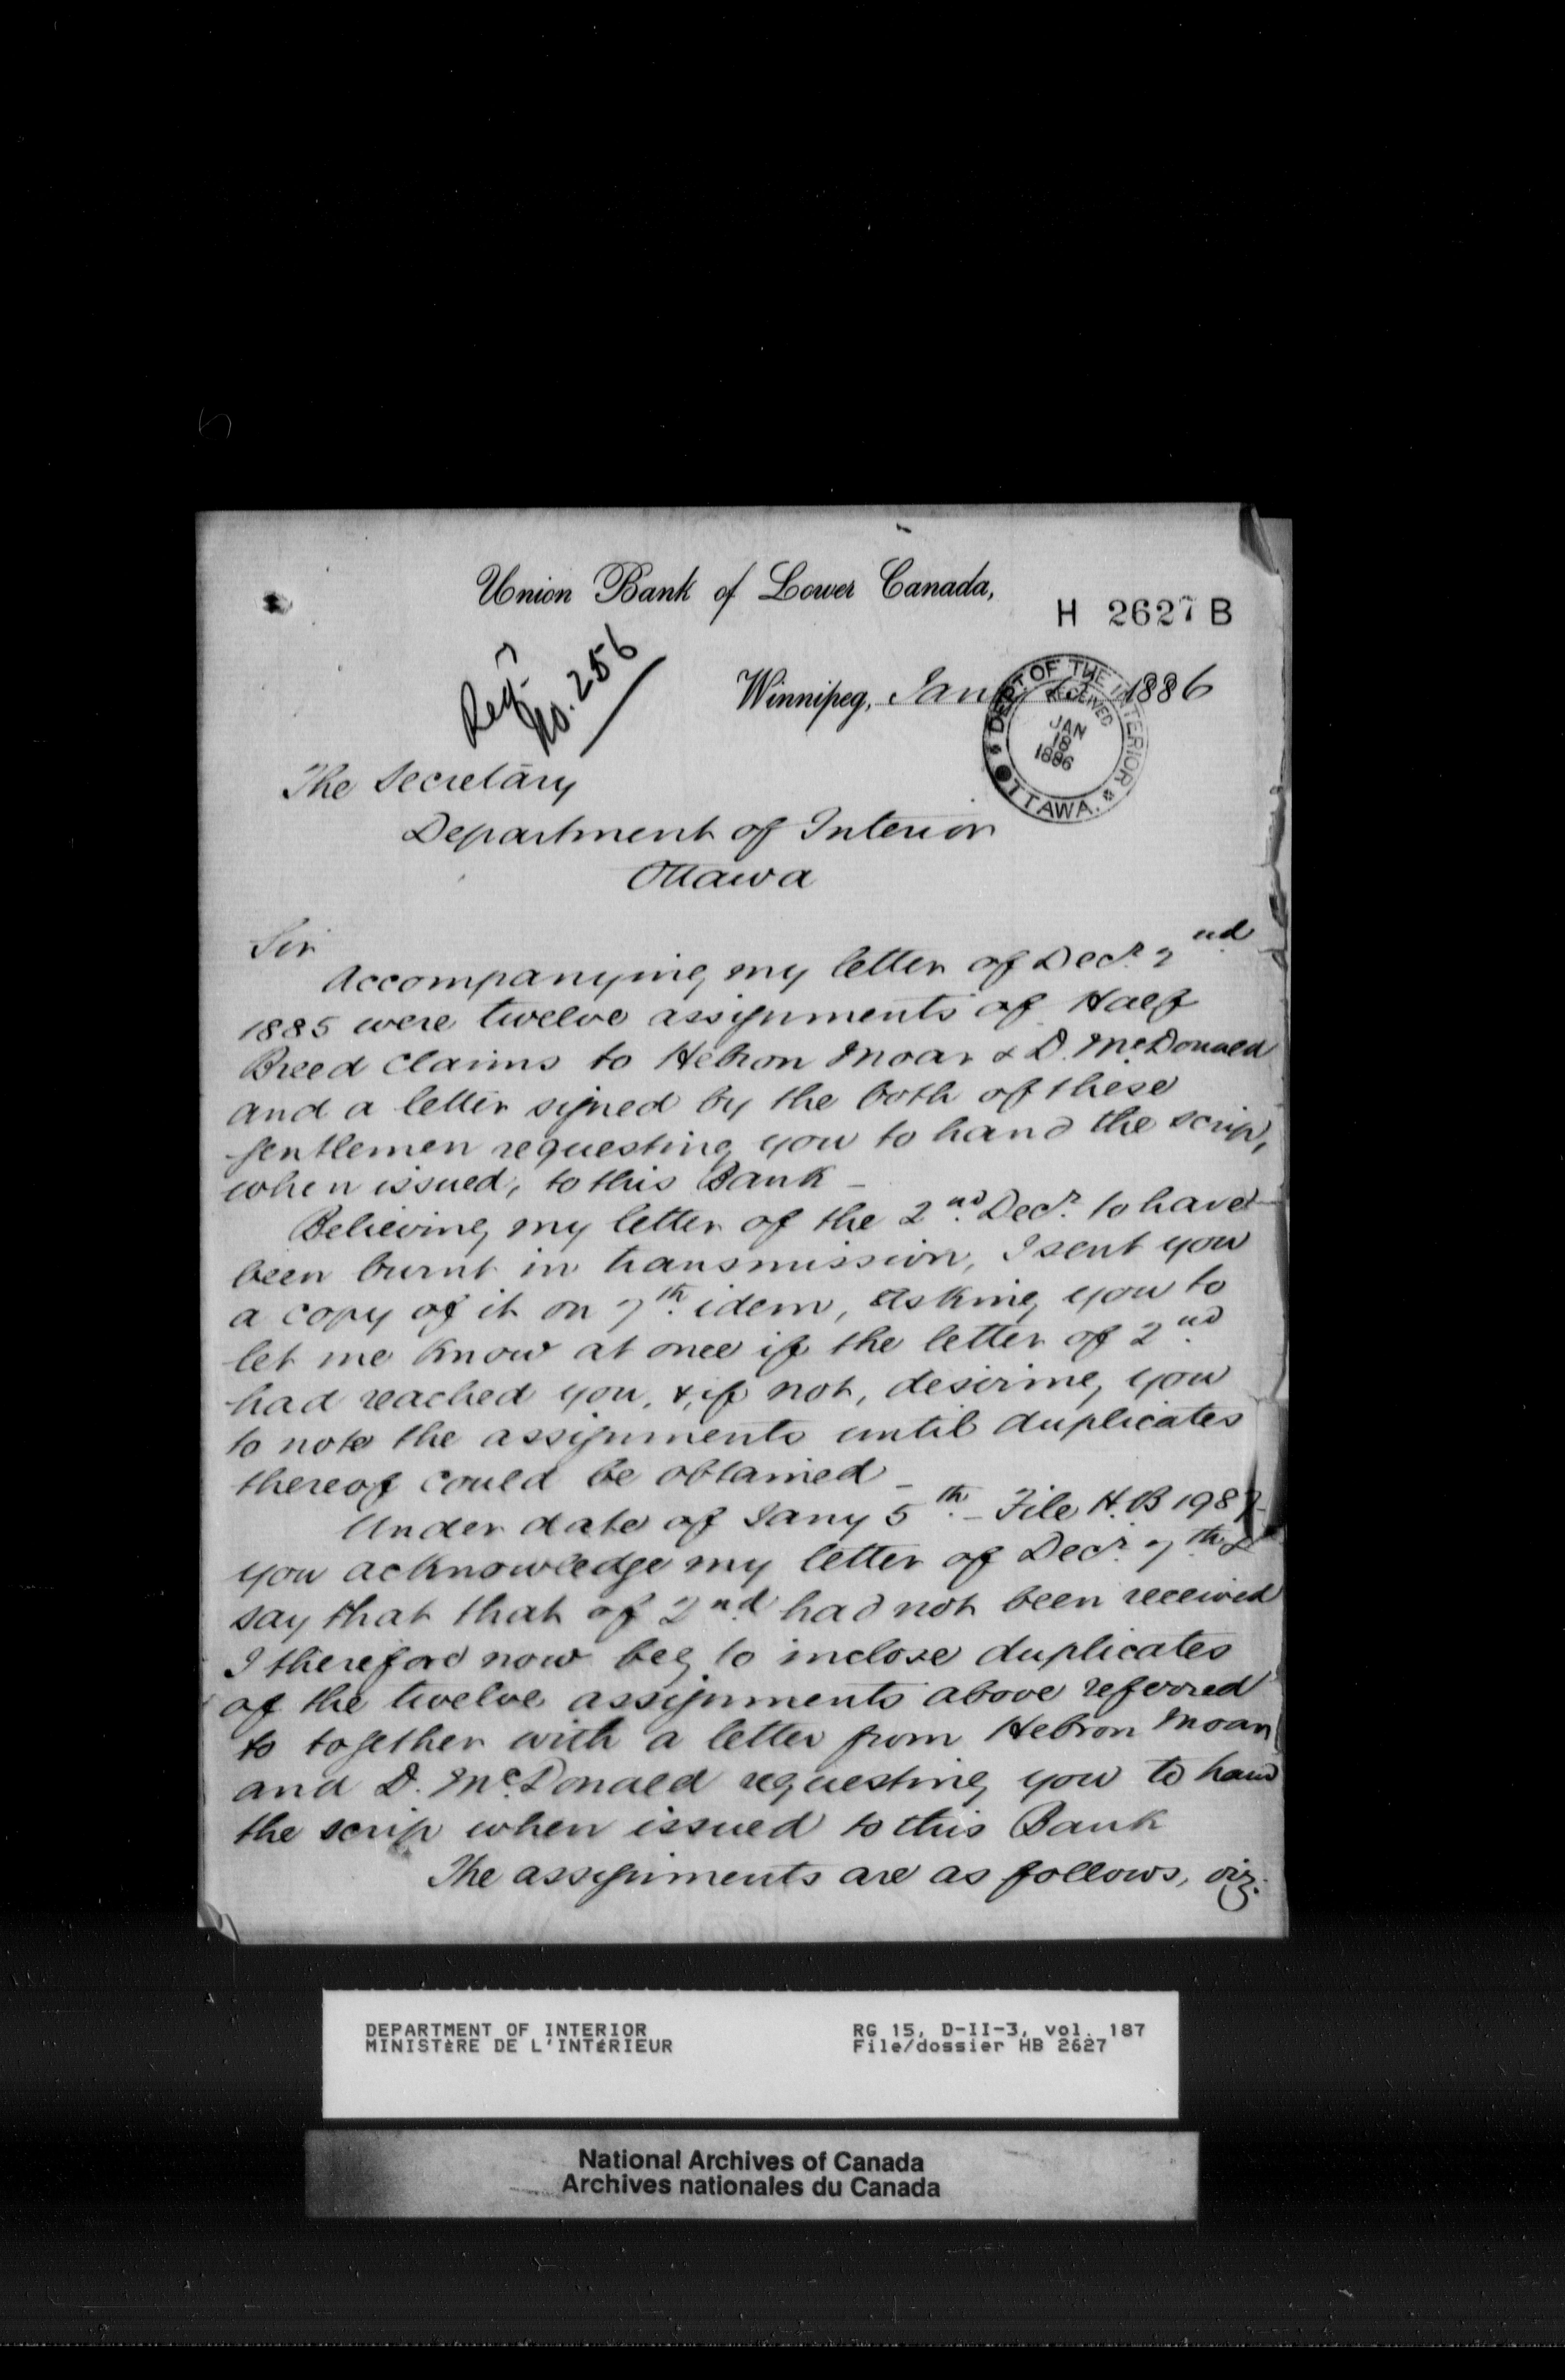 Union Bank of Lower Canada,
H 2627 B
Regd
No. 256
Winnipeg, Jany 1886
DEPT OF THE INTERIOR
RECEIVED
JAN
18
1886
OTTAWA.
The Secretary
Department of Interior
Ottawa
Sir
Accompanying my letter of Decr. 2nd
1885 were twelve assignments of Half
Breed claims to Hebron Moar & D. McDonald
and a letter signed by the both of these
gentlemen requesting you to hand the scrip,
when issued, to this Bank –
Believing my letter of the 2nd. Decr. to have
been burnt in transmission, I sent you
a copy of it on 7th. idem, asking you to
let me know at once if the letter of 2nd
had reached you, & if not, desiring you
to note the assignments until duplicates
thereof could be obtained –
Under date of Jany 5th. – File H.B 1987
you acknowledge my letter of Decr. 7th. &
say that that of 2nd had not been received
I therefore now beg to inclose duplicates
of the twelve assignments above referred
to together with a letter from Hebron Moar
and D. McDonald requesting you to hand
the scrip when issued to this Bank
The assignments are as follows, viz.
DEPARTMENT OF INTERIOR
MINISTÈRE DE L'INTÉRIEUR
RG 15, D-II-3, vol. 187
File/dossier HB 2627
National Archives of Canada
Archives nationales du Canada